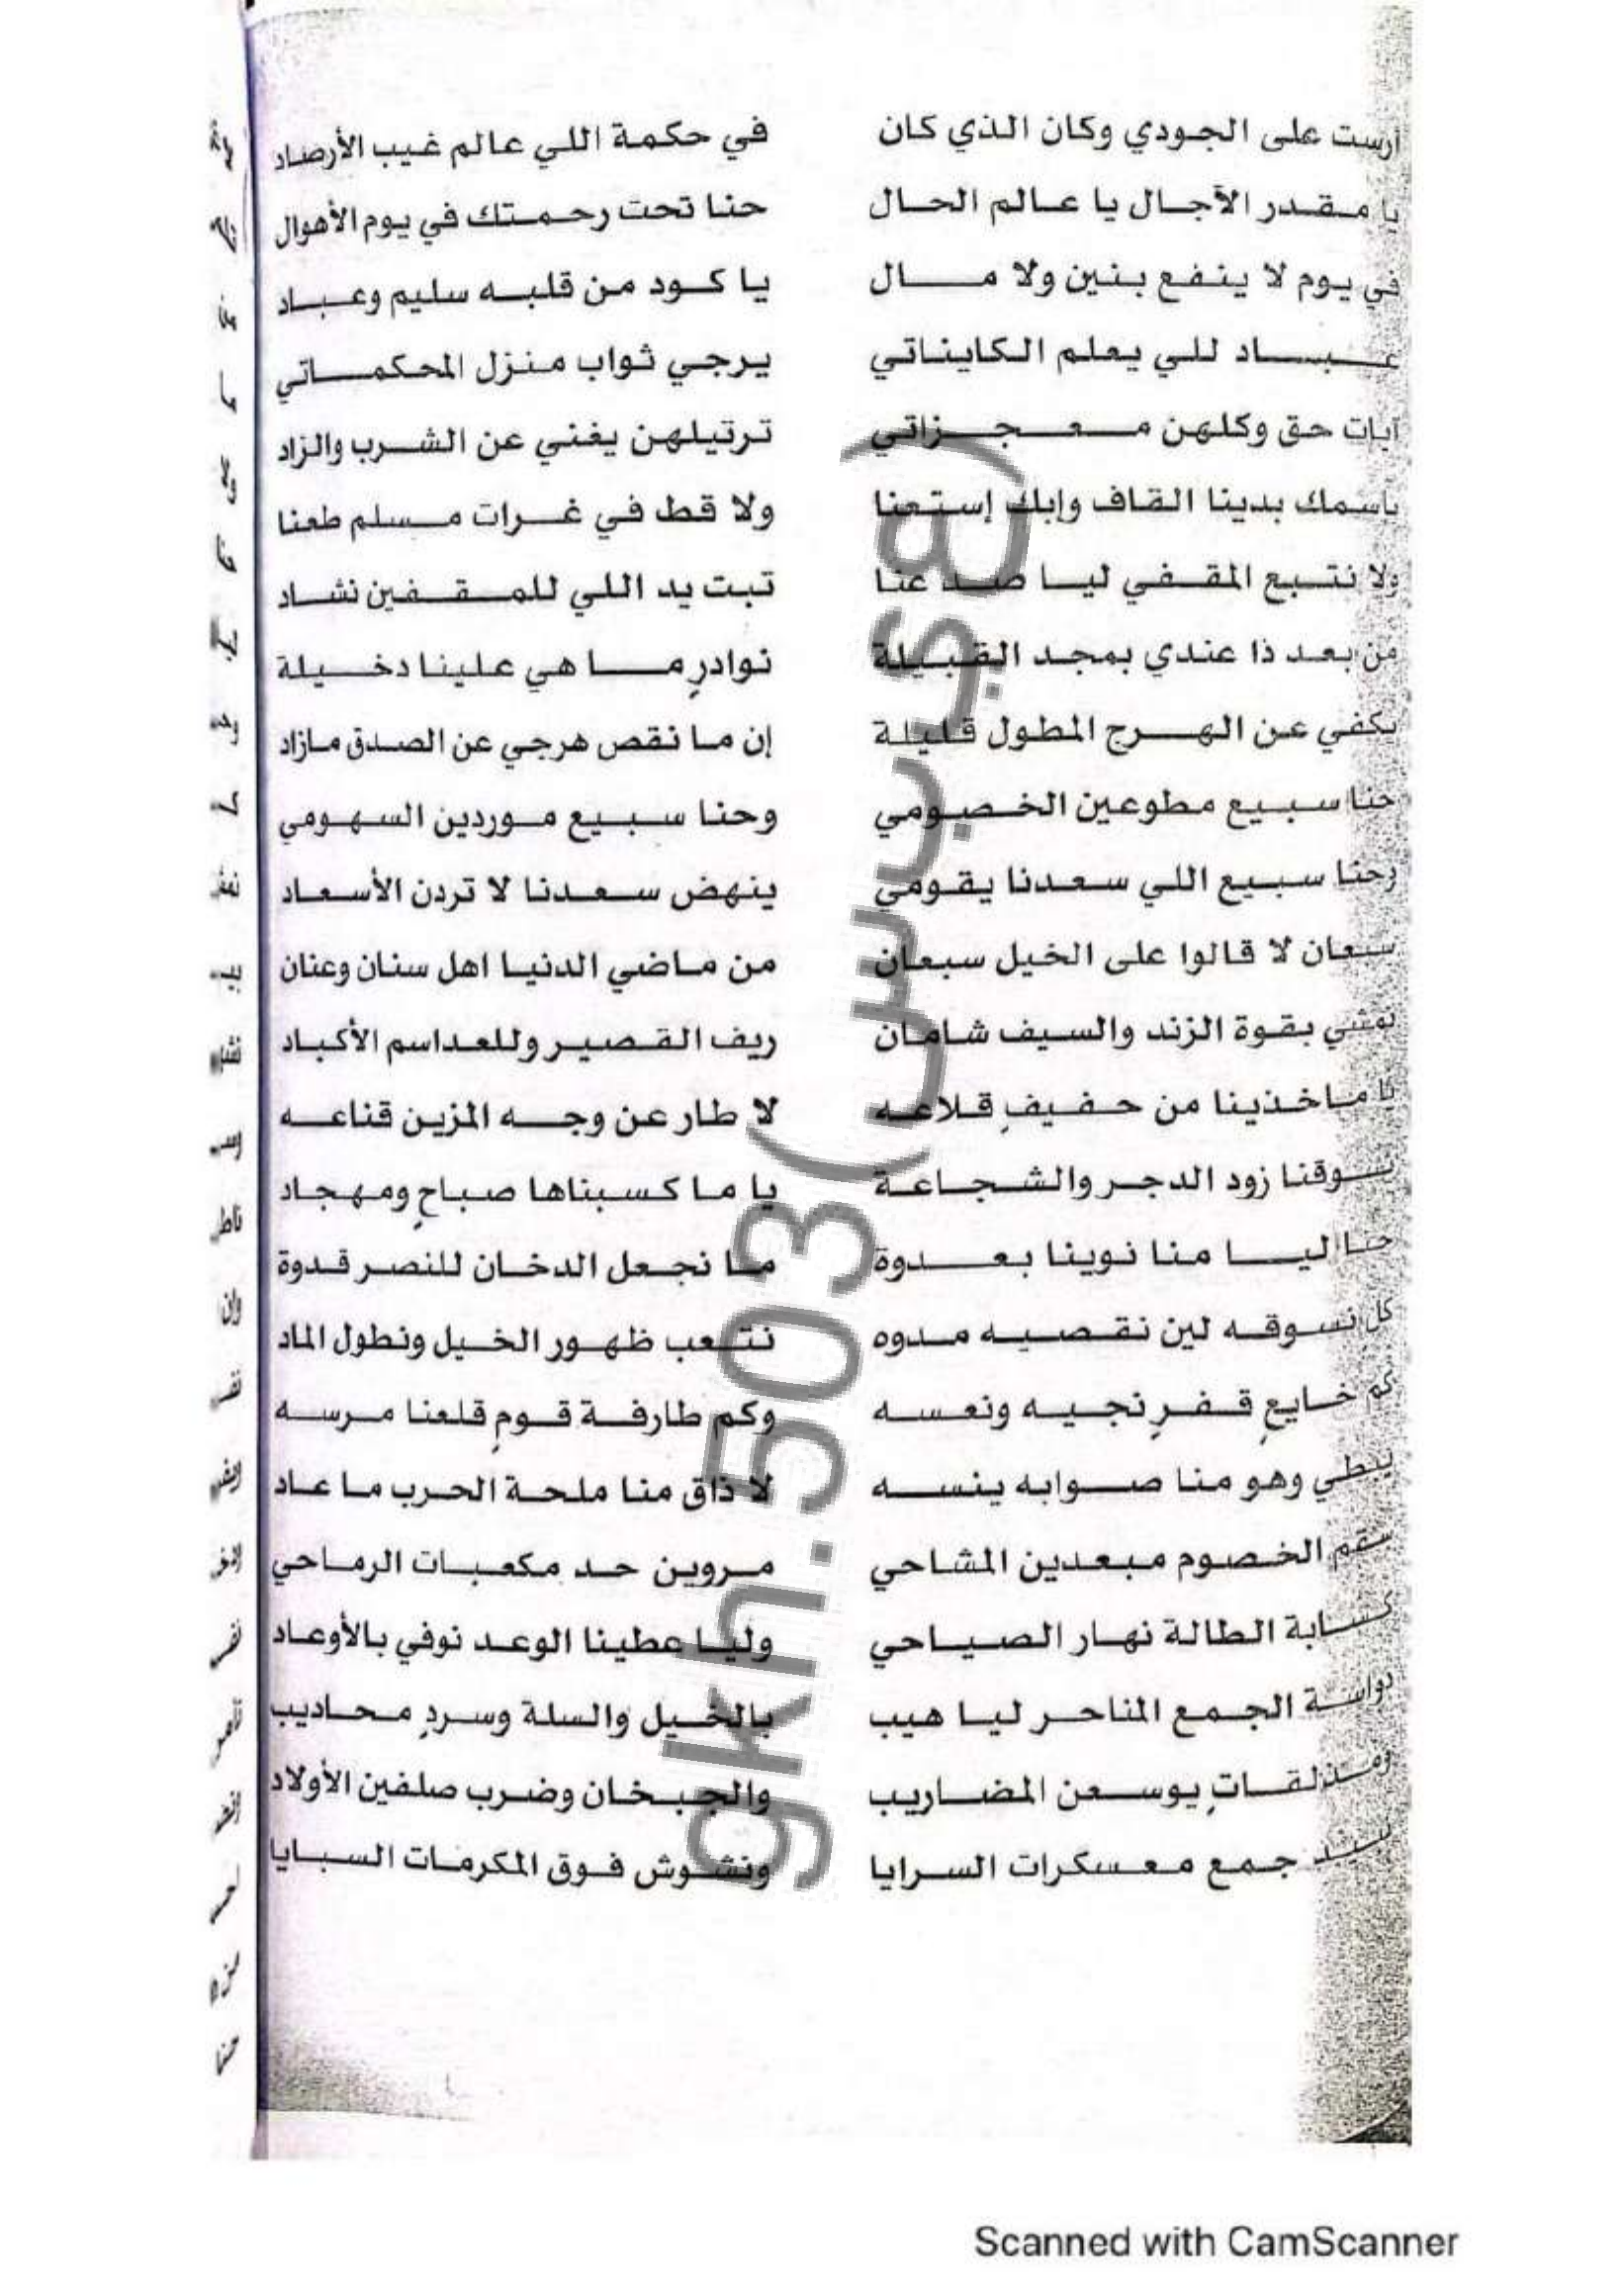 أرست على الجودي وكان الذي كان في حكمة اللي عالم غيب الأرصاد
يا مقدر الآجال يا عالم الحال حنا تحت رحمتك في يوم الأهوال
في يوم لا ينفع بنين ولا مال يا كود من قلبه سليم وعباد
عباد للي يعلم الكايناتي يرجي ثواب منزل المحكماتي
آيات حق وكلهن معجزاتي ترتيلهن يغني عن الشرب والزاد
باسمك بدينا القاف وإبك إستعنا ولا قط في غرات مسلم طعنا
ولا نتبع المقفي ليا صد عنا تبت يد اللي للمقفين نشاد
من بعد ذا عندي بمجد القبيلة نوادرٍ ما هي علينا دخيلة
يكفي عن الهرج المطول قليلة إن ما نقص هرجي عن الصدق مازاد
حنا سبيع مطوعين الخصومي وحنا سبيع موردين السهومي
وحنا سبيع اللي سعدنا يقومي ينهض سعدنا لا تردن الأسعاد
سبعان لا قالوا على الخيل سبعان من ماضي الدنيا اهل سنان وعنان
نمشي بقوة الزند والسيف شامان ريف القصير وللعداسم الأكباد
يا ماخذينا من حفيفٍ قلاعه لا طار عن وجه المزين قناعه
بسوقنا زود الدجر والشجاعة يا ما كسبناها صباحٍ ومهجاد
حنا ليا منا نوينا بعدوة ما نجعل الدخان للنصر قدوة
كل نسوقه لين نقصيه مدوه نتعب ظهور الخيل ونطول الماد
كم خايعٍ قفرٍ نجيه ونعسه وكم طارفة قومٍ قلعنا مرسه
يبطي وهو منا صوابه ينسه لا ذاق منا ملحة الحرب ما عاد
سقم الخصوم مبعدين المشاحي مروين حد مكعبات الرماحي
كسابة الطالة نهار الصياحي وليا عطينا الوعد نوفي بالأوعاد
دواسة الجمع المناحر ليا هيب بالخيل والسلة وسردٍ محاديب
ومذلقاتٍ يوسعن المضاريب والجبخان وضرب صلفين الأولاد
جمع معسكرات السرايا ونشوش فوق المكرمات السبايا
gkh.503(سبيعي)
Scanned with CamScanner